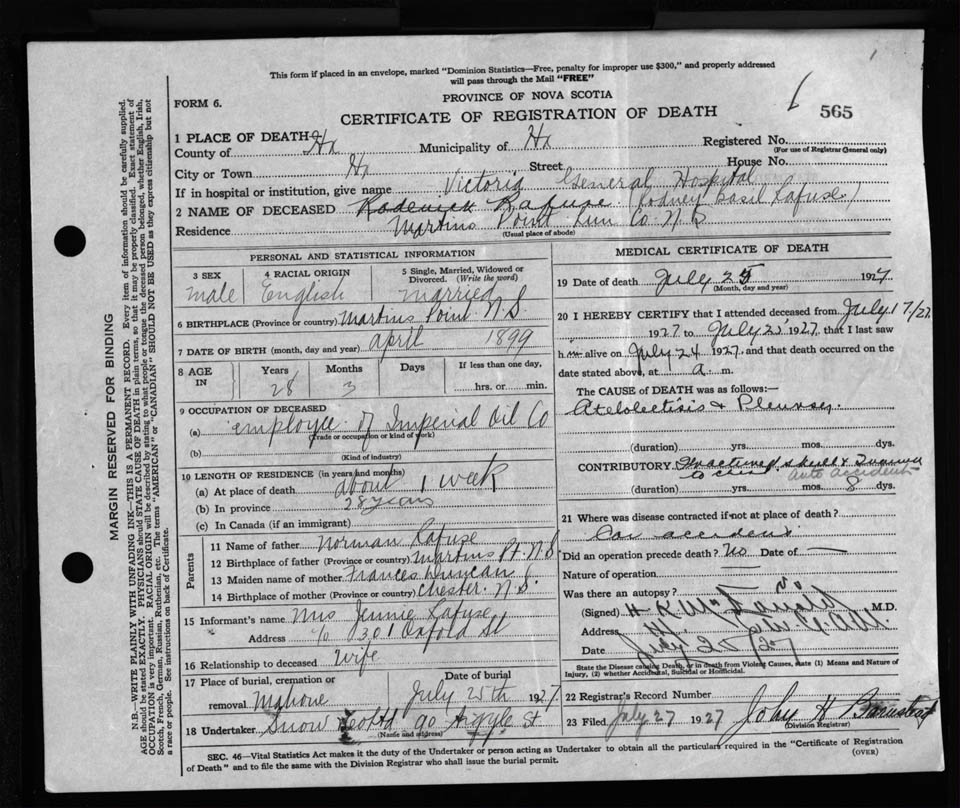 This form if placed in an envelope, marked "Dominion Statistics—Free, penalty for improper use $300," and properly addressed
will pass through the Mail "FREE"
FORM 6.
PROVINCE OF NOVA SCOTIA
CERTIFICATE OF REGISTRATION OF DEATH
6
565
1 PLACE OF DEATH
County of Hx Municipality of Hx Registered No.
(For use of Registrar General only)
City or Town Hx Street House No.
If in hospital or institution, give name Victoria General Hospital
2 NAME OF DECEASED Roderick Rafuse (Rodney Basil Rafuse)
Residence Martins Point Lun Co N.S
(Usual place of abode)
PERSONAL AND STATISTICAL INFORMATION
3 SEX
male
4 RACIAL ORIGIN
English
5 Single, Married, Widowed or Divorced. (Write the word)
married
6 BIRTHPLACE (Province or country) Martins Point N.S.
7 DATE OF BIRTH (month, day and year) April 1899
8 AGE IN
Years 28
Months 3
Days
If less than one day,
hrs. or min.
9 OCCUPATION OF DECEASED
(a) employee of Imperial Oil Co
(Trade or occupation or kind of work)
(b)
(Kind of industry)
10 LENGTH OF RESIDENCE (in years and months)
(a) At place of death about 1 week
(b) In province 28 years
(c) In Canada (if an immigrant)
Parents
11 Name of father Norman Rafuse
12 Birthplace of father (Province or country) Martins Pt. N.S
13 Maiden name of mother Frances Duncan
14 Birthplace of mother (Province or country) Chester N.S.
15 Informant's name Mrs Jennie Rafuse
Address c/o 301 Oxford St
16 Relationship to deceased Wife
17 Place of burial, cremation or removal Mahone
Date of burial
July 25th 1927
18 Undertaker Snow 90 Argyle St
(Name and address)
MEDICAL CERTIFICATE OF DEATH
19 Date of death July 25 1927
(Month, day and year)
20 I HEREBY CERTIFY that I attended deceased from July 17/27
1927 to July 25 1927 that I last saw
him alive on July 24 1927, and that death occurred on the
date stated above, at 1 a. m.
The CAUSE OF DEATH was as follows:—
Atelolectisis & Pleurisy
(duration) yrs. mos. dys.
CONTRIBUTORY. Fractured skull &
auto accident
(duration) yrs. mos. 8 dys.
21 Where was disease contracted if not at place of death?
Car accident
Did an operation precede death? No Date of —
Nature of operation —
Was there an autopsy? no
(Signed) H. K. M.D.
Address
Date July 25 /27
State the Disease causing Death, or in death from Violent Causes, state (1) Means and Nature of Injury, (2) whether Accidental, Suicidal or Homicidal.
22 Registrar's Record Number
23 Filed July 27 1927 John H Barnstead
(Division Registrar)
SEC. 46—Vital Statistics Act makes it the duty of the Undertaker or person acting as Undertaker to obtain all the particulars required in the "Certificate of Registration
of Death" and to file the same with the Division Registrar who shall issue the burial permit.
(OVER)
MARGIN RESERVED FOR BINDING
N.B.—WRITE PLAINLY WITH UNFADING INK—THIS IS A PERMANENT RECORD. Every item of information should be carefully supplied.
AGE should be stated EXACTLY. PHYSICIANS should STATE CAUSE OF DEATH in plain terms, so that it may be properly classified. Exact statement of
OCCUPATION is very important. RACIAL ORIGIN will be described by stating to what people or tongue the deceased person belonged, whether English, Irish,
Scotch, French, German, Russian, Ruthenian, etc. The terms "AMERICAN" or "CANADIAN" SHOULD NOT BE USED as they express citizenship but not
a race or people. See instructions on back of Certificate.